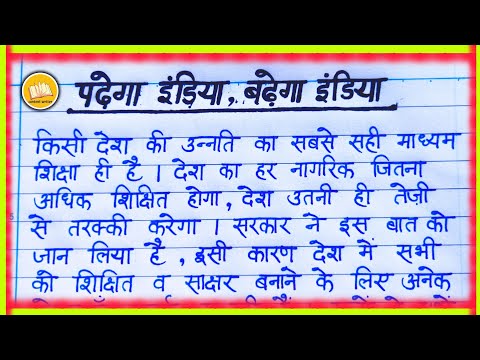 पढ़ेगा इंडिया, बढ़ेगा इंडिया
किसी देश की उन्नति का सबसे सही माध्यम
शिक्षा ही है । देश का हर नागरिक जितना
अधिक शिक्षित होगा, देश उतनी ही तेज़ी
से तरक्की करेगा । सरकार ने इस बात को
जान लिया है , इसी कारण देश में सभी
को शिक्षित व साक्षर बनाने के लिए अनेक